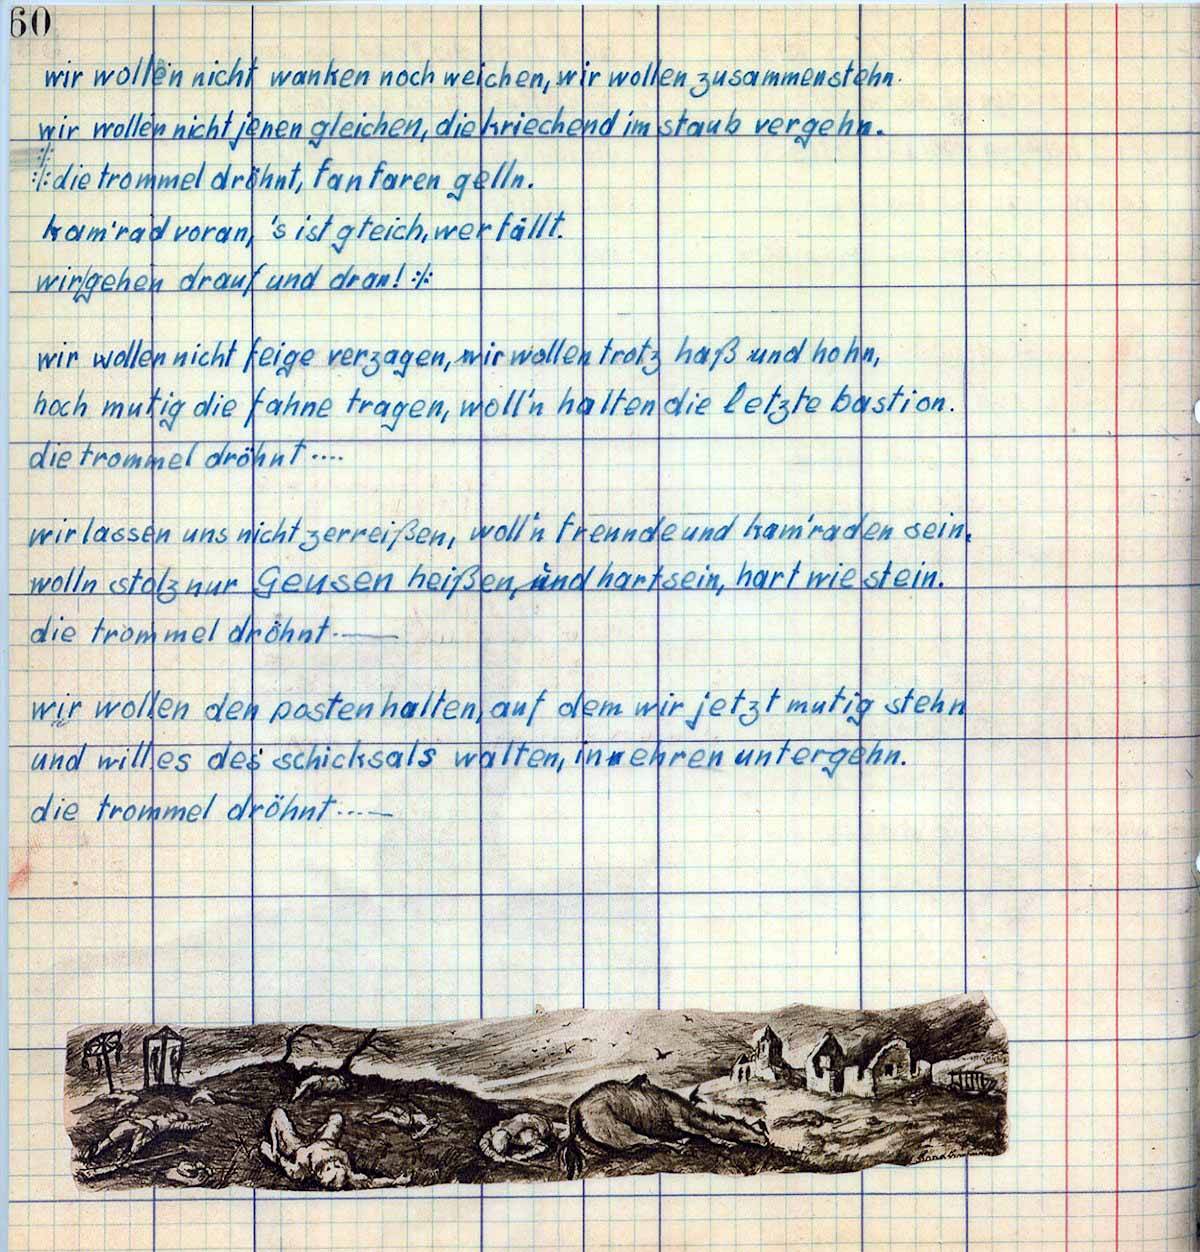 60
wir wollen nicht wanken noch weichen, wir wollen zusammenstehn.
wir wollen nicht jenen gleichen, die kriechend im staub vergehn.
:/:
:/: die trommel dröhnt, fanfaren gelln.
kam'rad voran, 's ist gleich, wer fällt.
wir gehen drauf und dran! :/:
wir wollen nicht feige verzagen, wir wollen trotz haß und hohn,
hoch mutig die fahne tragen, woll'n halten die letzte bastion.
die trommel dröhnt....
wir lassen uns nicht zerreißen, woll'n freunde und kam'raden sein.
wolln stolz nur Geusen heißen, und hart sein, hart wie stein.
die trommel dröhnt.——
wir wollen den posten halten, auf dem wir jetzt mutig stehn
und will es des schicksals walten, in ehren untergehn.
die trommel dröhnt....—